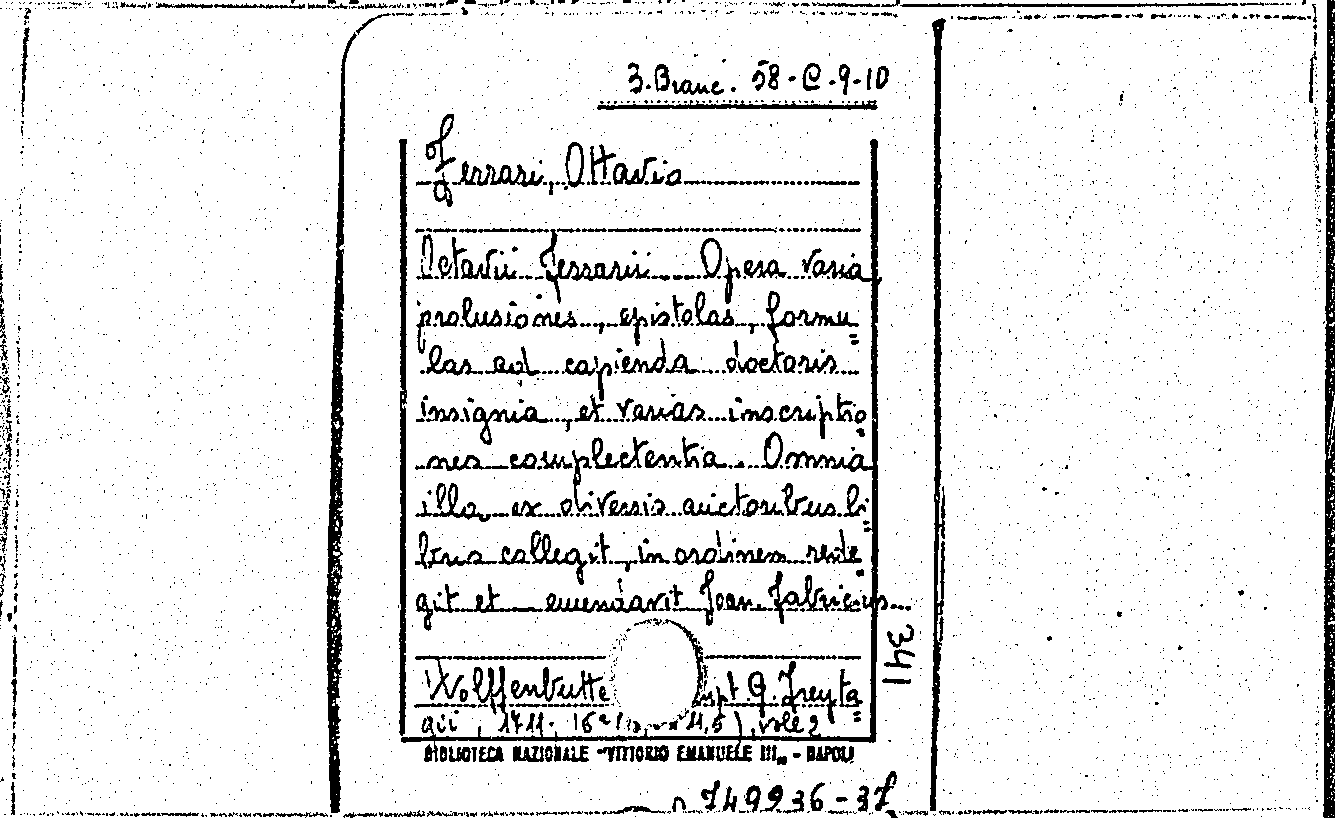 3. Branc. 58-C-9-10
Ferrari, Ottavio
Octavii Ferrarii Opera varia
prolusiones, epistolas, formu=
las ad capienda doctoris
insignia, et varias inscriptio=
nes complectentia. Omnia
illa, ex diversis auctoribus li=
bris collegit, in ordinem rede=
git et emendavit Joan. Fabricius...
341
Wolffenbutte G. Freyta=
gii, 1711. 16° vol. 2
BIBLIOTECA NAZIONALE "VITTORIO EMANUELE III„ - NAPOLI
749936-37